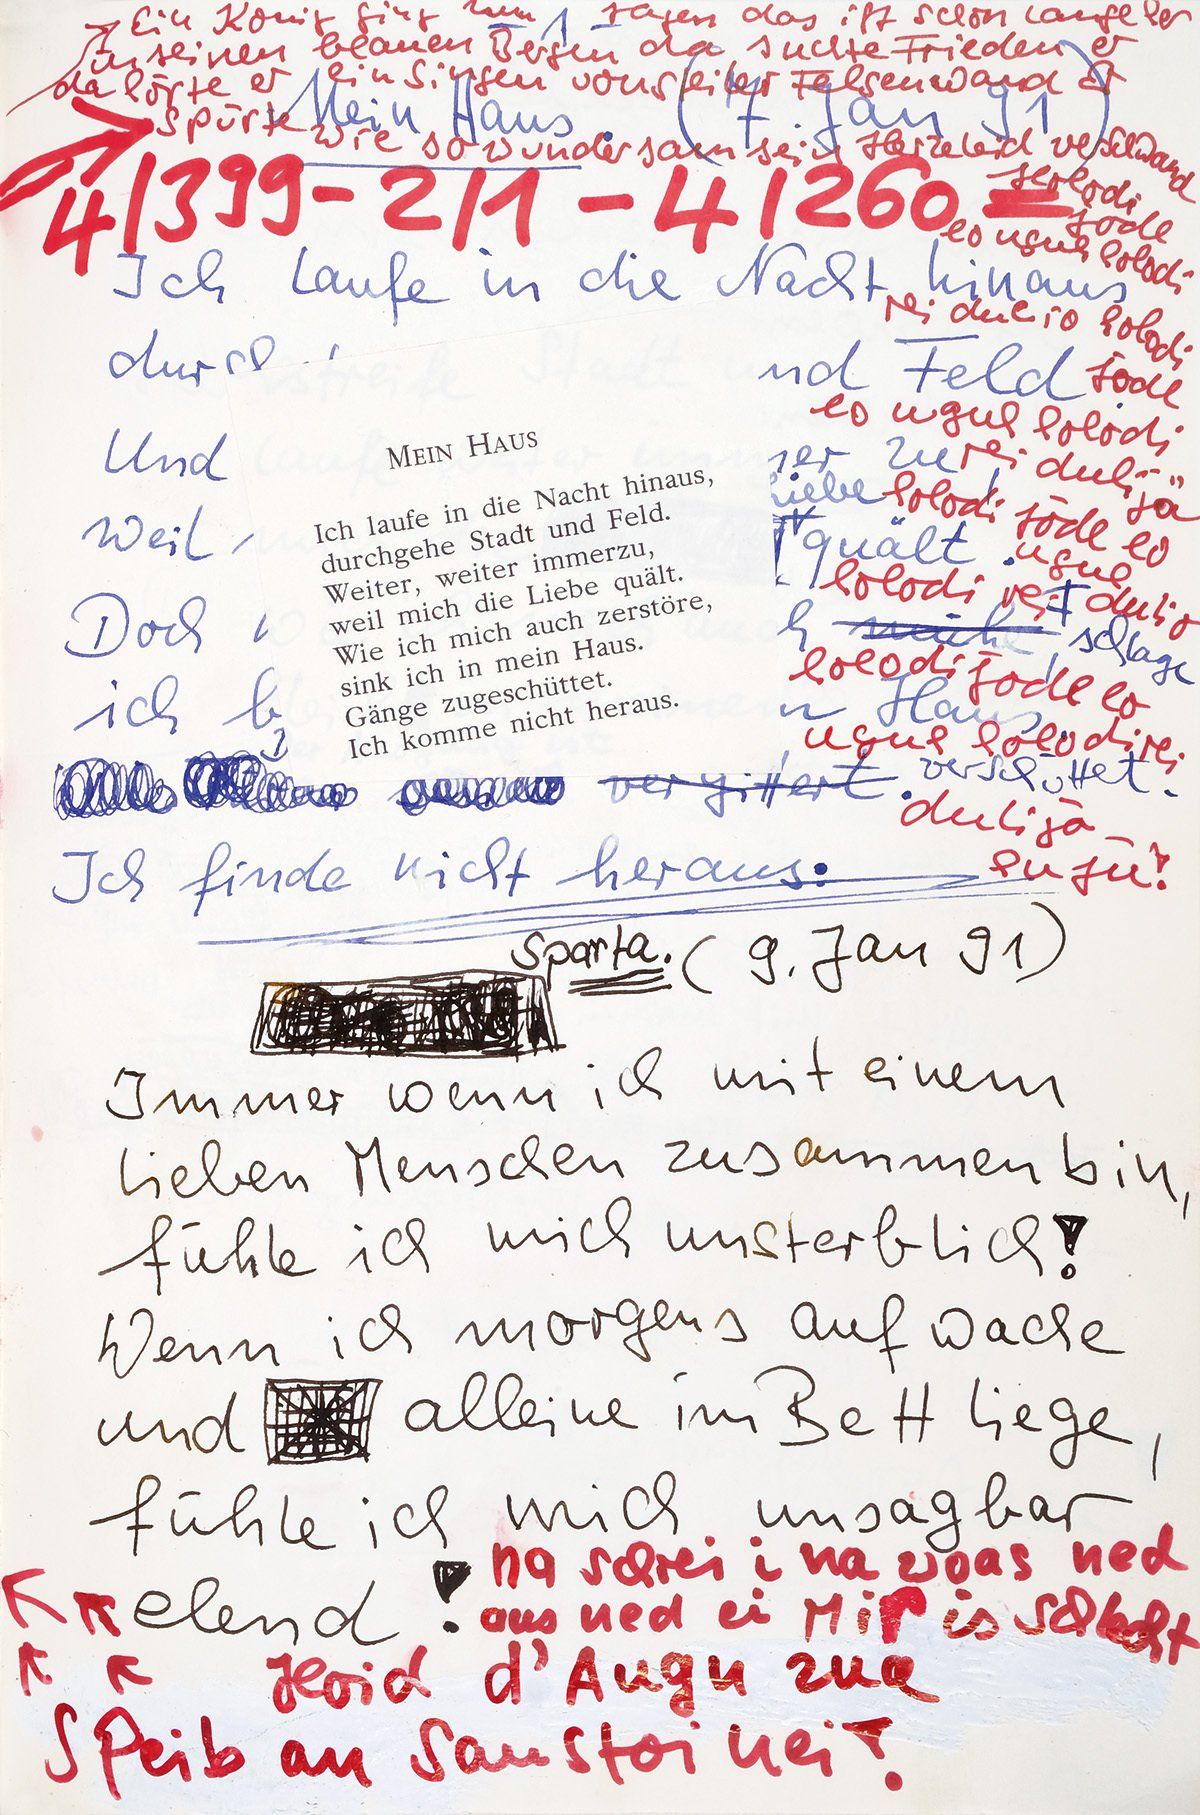 Ein König ging zum sagen das ist schon lange her
In seinen blauen Bergen da suchte Frieden er
da hörte er ein Singen von steiler Felsenwand er
spürte wie so wundersam sein Herzeleid verschwand
Mein Haus. (7. Jan 91)
4/399-2/1-4/260
holodi
jodl
eo ugul holodi
Ich laufe in die Nacht hinaus
rei dulio holodi
nd Feld
jodl
eo ugul holodi
Und
er zu
rei dulijä
Weil
Liebe
holodi jodl eo
quält.
ugul
holodi rei dulio
Doch
h
schlage
holodi jodl eo
ich b
n Haus
ugul holodi rei
vergittert. verschüttet.
dulijä
eu jü!
Ich finde nicht heraus.
MEIN HAUS
Ich laufe in die Nacht hinaus,
durchgehe Stadt und Feld.
Weiter, weiter immerzu,
weil mich die Liebe quält.
Wie ich mich auch zerstöre,
sink ich in mein Haus.
Gänge zugeschüttet.
Ich komme nicht heraus.
Sparta. (9. Jan 91)
Immer wenn ich mit einem
lieben Menschen zusammen bin,
fühle ich mich unsterblich!
Wenn ich morgens aufwache
und alleine im Bett liege,
fühle ich mich unsagbar
elend!
na schrei i na woas ned
aus ned ei Mir is schlecht
Hoid d'Augn zua
Speib an Saustoi nei!